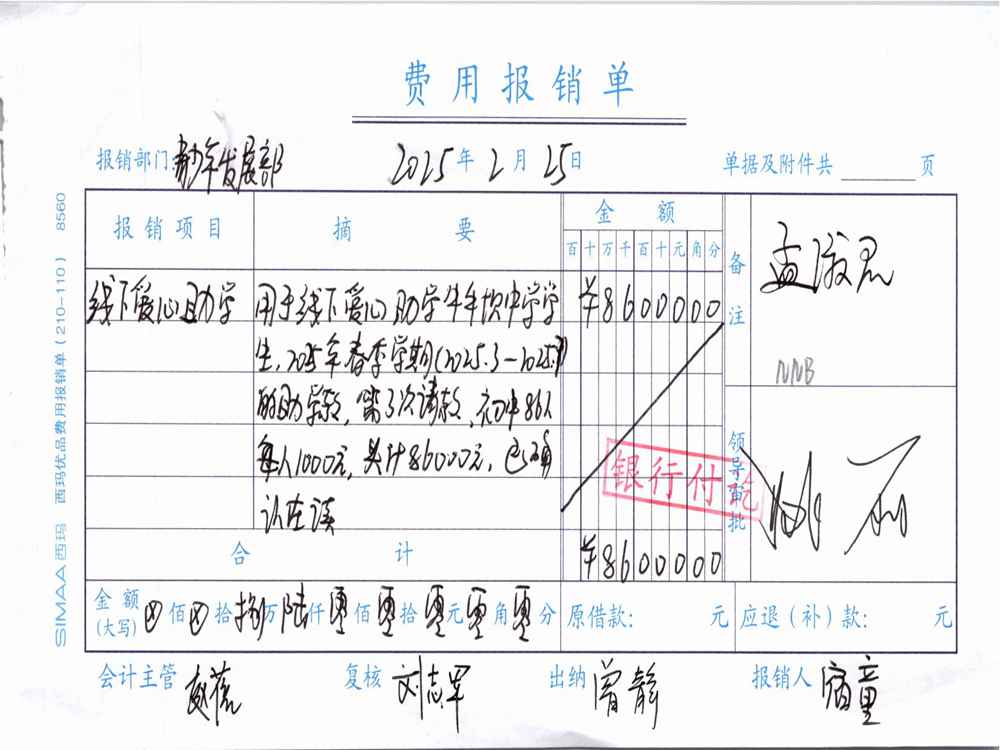 费用报销单
报销部门 青少年发展部 2025年2月25日 单据及附件共 页
SIMAA西玛 西玛优品费用报销单(210-110) 8560
报销项目 摘要 金额 备注
百十万千百十元角分
线下爱心助学 用于线下爱心助学 中学学 ¥8600000
生,2025年春季学期(2025.3-2025.7)
的助学款,第3次请款,初中86人
每人1000元,共计86000元,已确
认在读
孟淑君
NNB
领导审批
银行付讫
合计 ¥8600000
金额(大写) ⊗佰⊗拾捌万陆仟零佰零拾零元零角零分 原借款: 元 应退(补)款: 元
会计主管 赵蓓 复核 刘志军 出纳 曾静 报销人 宿童